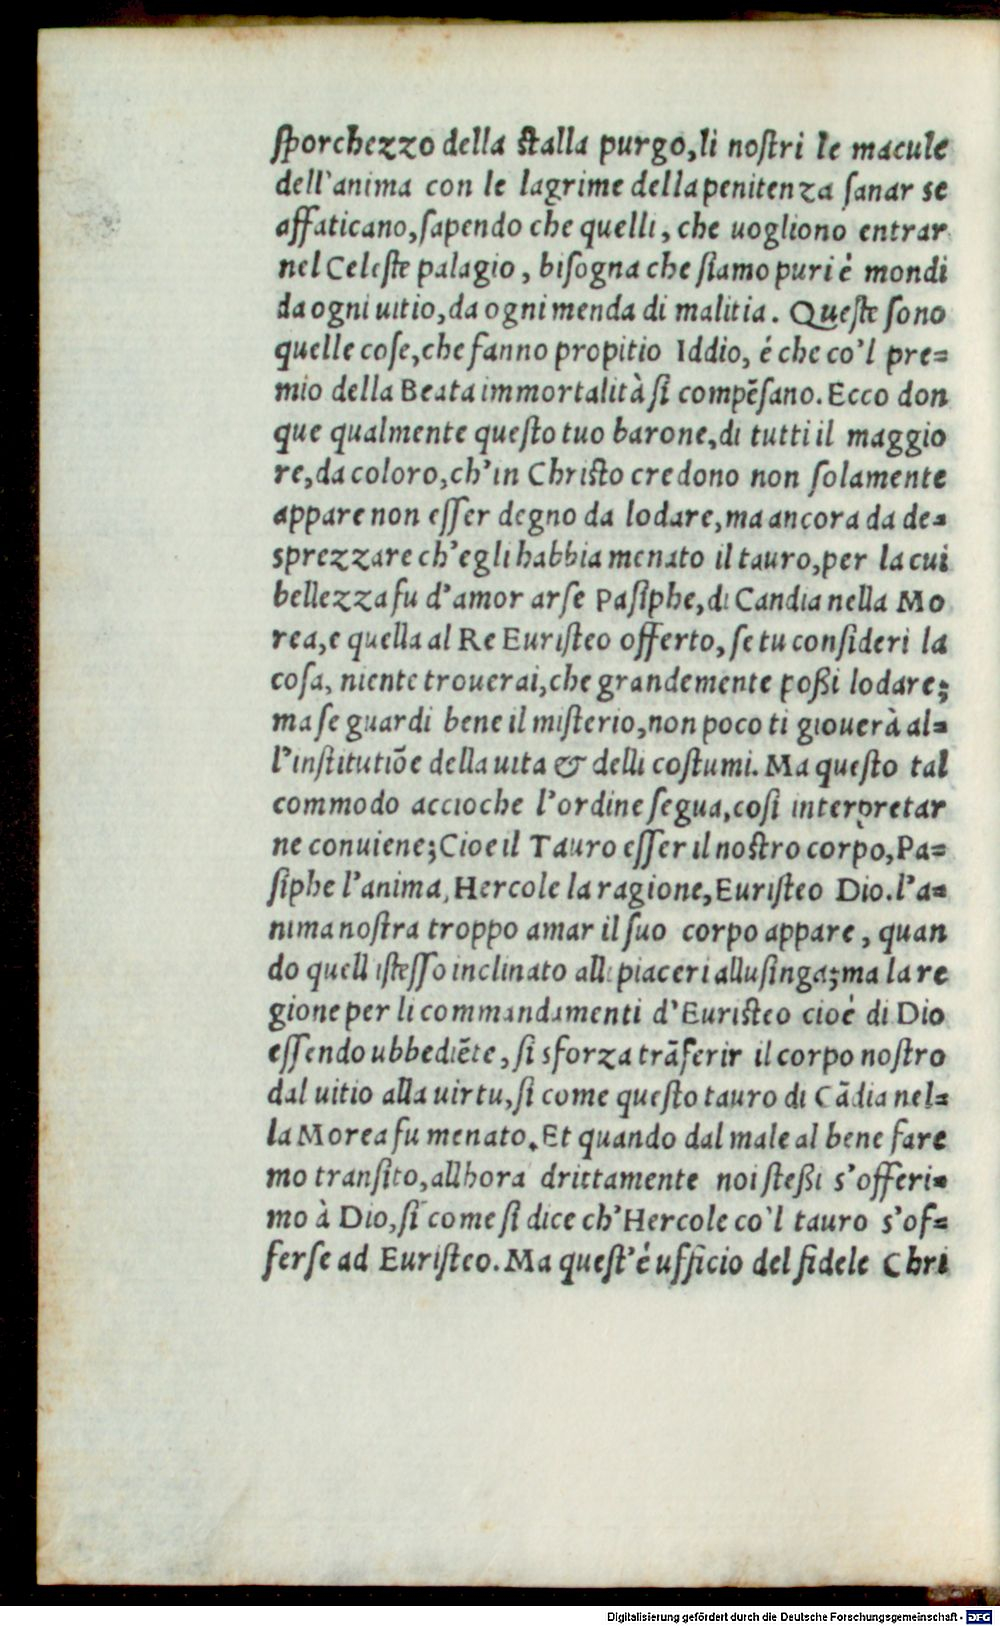 sporchezzo della stalla purgo, li nostri le macule
dell'anima con le lagrime della penitenza sanar se
affaticano, sapendo che quelli, che uogliono entrar
nel Celeste palagio, bisogna che siamo puri é mondi
da ogni uitio, da ogni menda di malitia. Queste sono
quelle cose, che fanno propitio Iddio, é che co'l pre=
mio della Beata immortalità si compēsano. Ecco don
que qualmente questo tuo barone, di tutti il maggio
re, da coloro, ch'in Christo credono non solamente
appare non esser degno da lodare, ma ancora da de=
sprezzare ch'egli habbia menato il tauro, per la cui
bellezza fu d'amor arse Pasiphe, di Candia nella Mo
rea, e quella al Re Euristeo offerto, se tu consideri la
cosa, niente trouerai, che grandemente poßi lodare;
ma se guardi bene il misterio, non poco ti giouerà al=
l'institutiōe della uita & delli costumi. Ma questo tal
commodo accioche l'ordine segua, così interpretar
ne conuiene; Cioe il Tauro esser il nostro corpo, Pa=
siphe l'anima, Hercole la ragione, Euristeo Dio. l'a=
nima nostra troppo amar il suo corpo appare, quan
do quell istesso inclinato alli piaceri allusinga; ma la re
gione per li commandamenti d'Euristeo cioé di Dio
essendo ubbediēte, si sforza trāsferir il corpo nostro
dal uitio alla uirtu, si come questo tauro di Cādia nel=
la Morea fu menato. Et quando dal male al bene fare
mo transito, allhora drittamente noi steßi s'offeri=
mo à Dio, si come si dice ch'Hercole co'l tauro s'of=
ferse ad Euristeo. Ma quest'é ufficio del fidele Chri
Digitalisierung gefördert durch die Deutsche Forschungsgemeinschaft - DFG